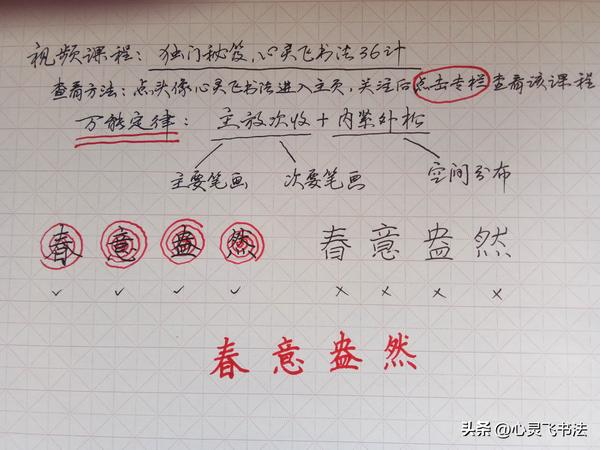 视频课程：独门秘笈，心灵飞书法36计
查看方法：点头像心灵飞书法进入主页，关注后点击专栏查看该课程
万能定律：主放次收+内紧外松
主要笔画 次要笔画 空间分布
春 意 盎 然 春 意 盎 然
✓ ✓ ✓ ✓ × × × ×
春 意 盎 然
头条@心灵飞书法